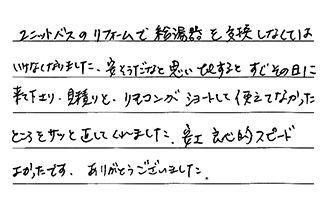 ユニットバスのリフォームで給湯器も交換しなくては
いけなくなりました、安そうだなと思いTELするとすぐその日に
来て下さり、見積りと、リモコンがショートして使えてなかった
ところをサッと直してくれました。安エ 良心的スピード
よかったです。ありがとうございました。